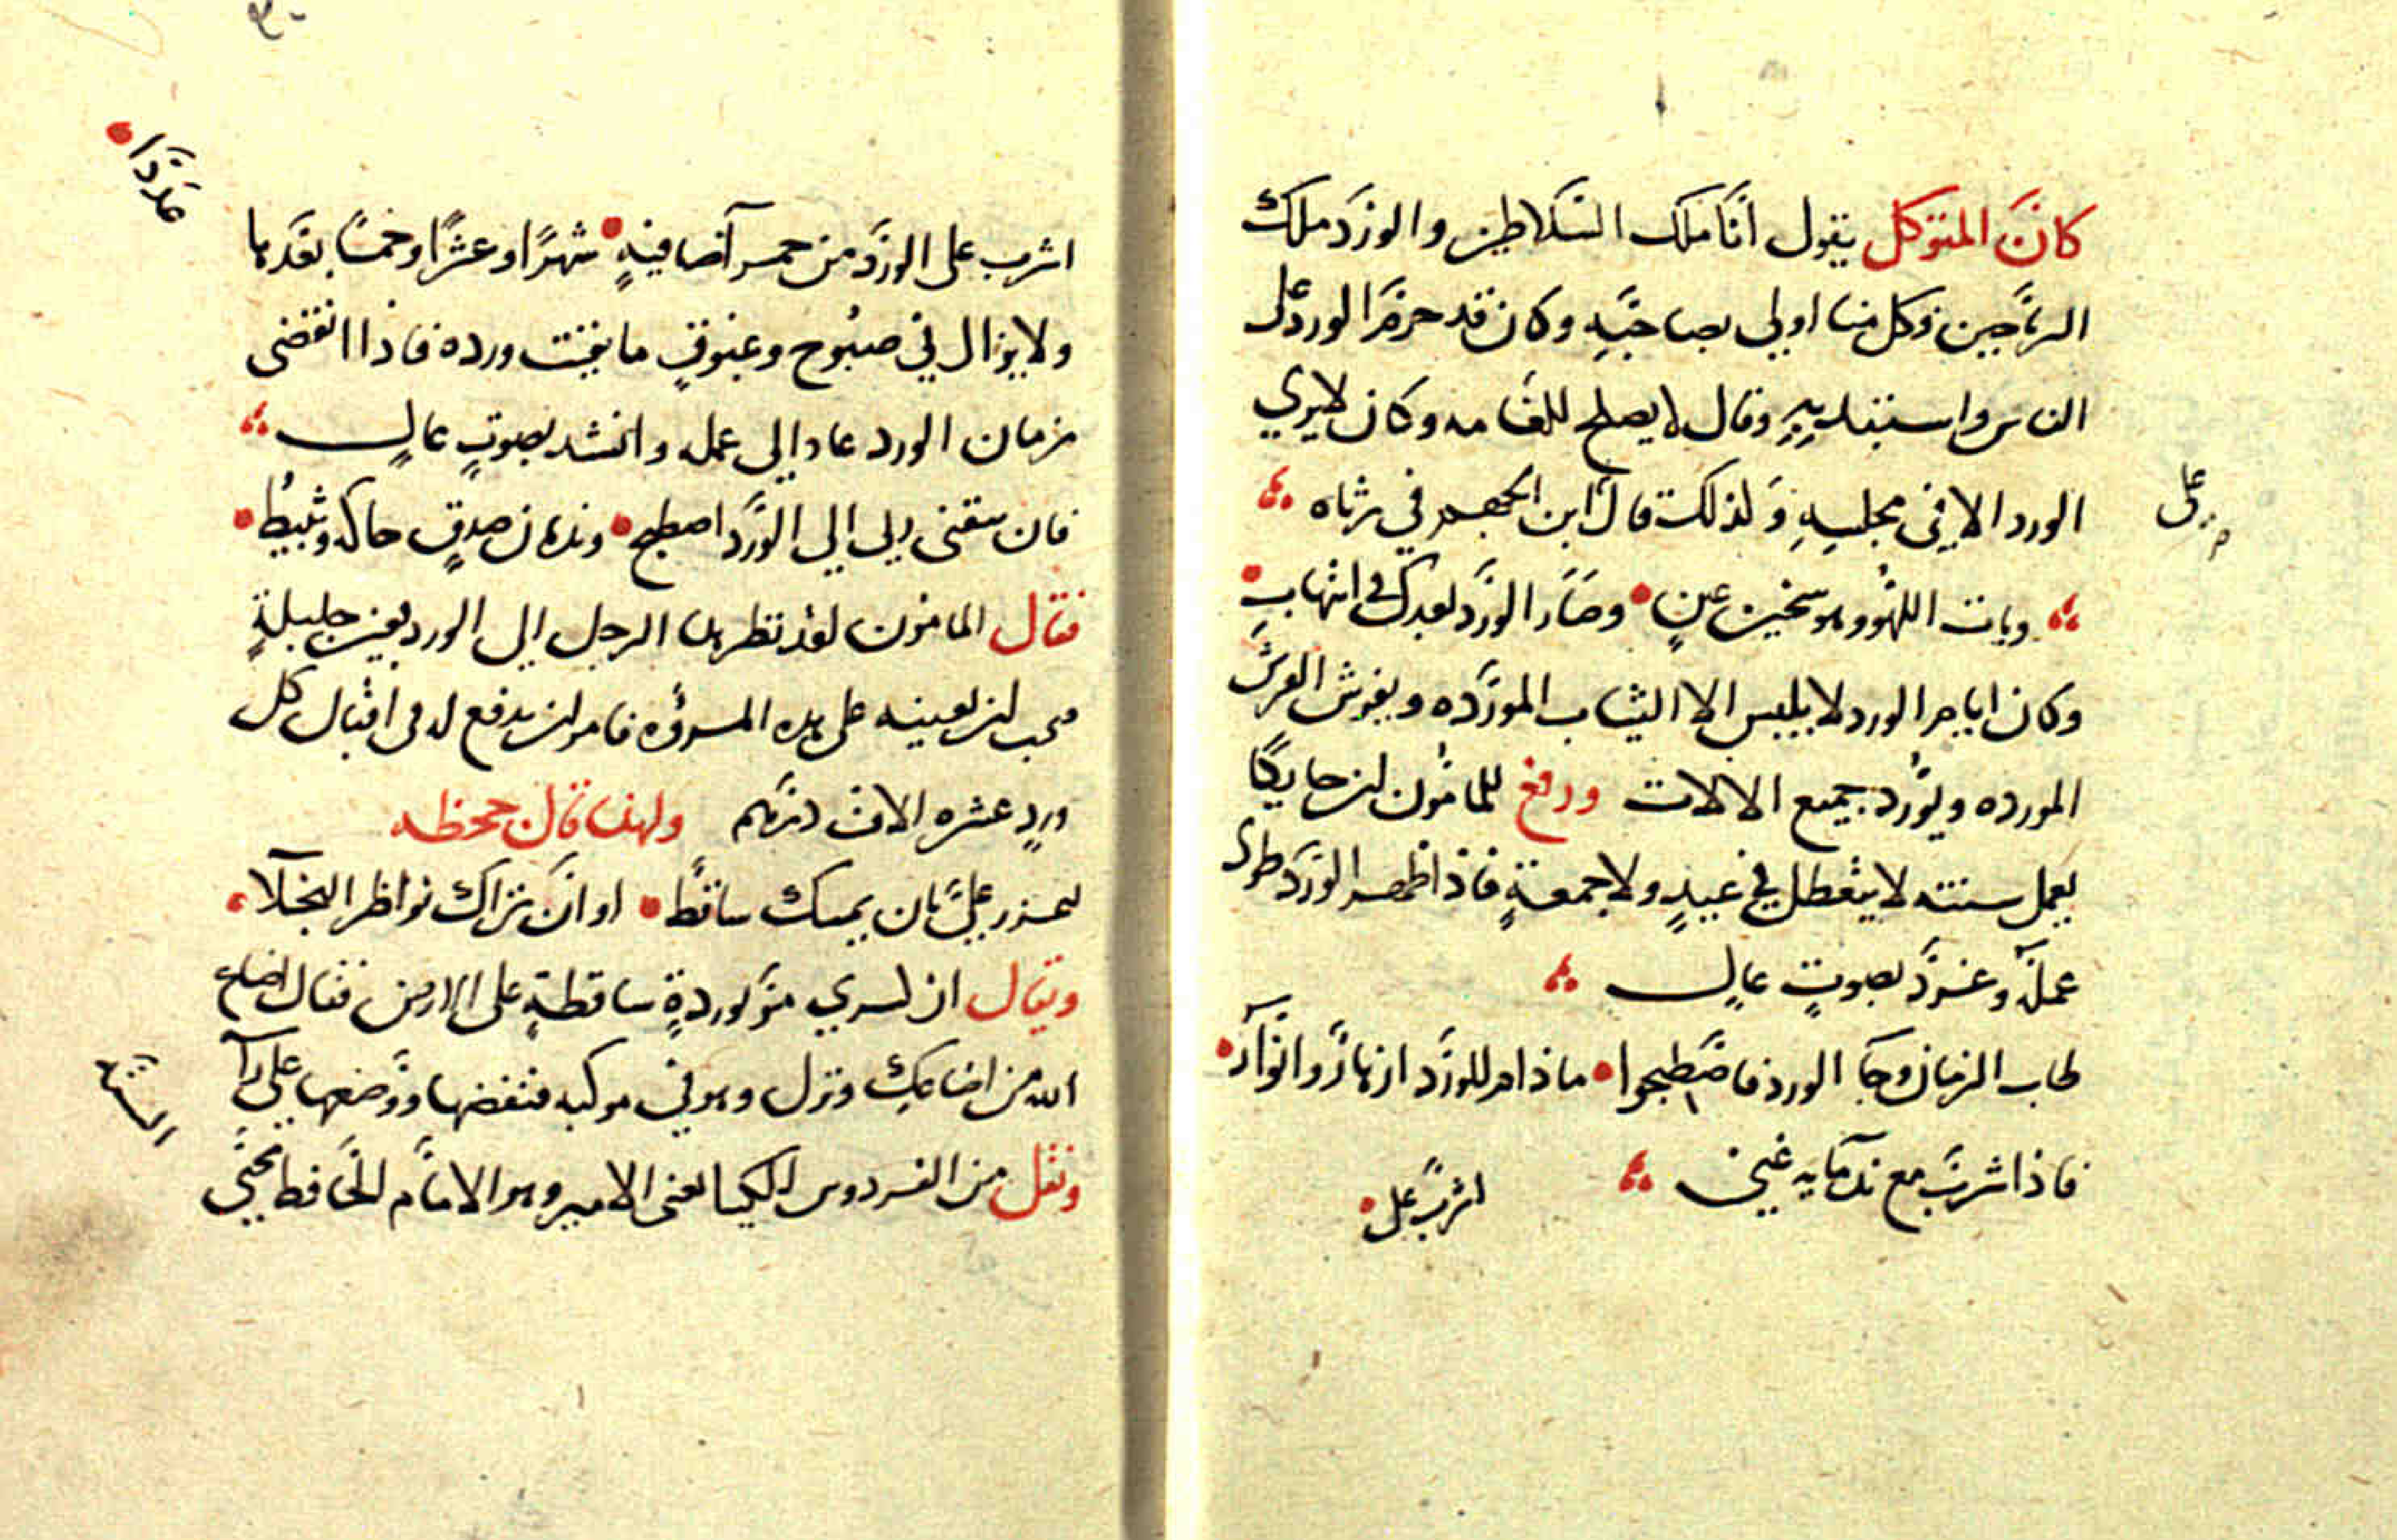 كانَ المتوكل يقول أنَا مَلك السَّلاطين والوَرَد ملك
الرّيَاحين وكل منا اولى بصاحبِه وكان قد حرّمَ الورد على
الناس واستبد به وقال لا يصلح للعَامه وكان لا يري
الورد الا في مجلسِهِ وَلذلك قال ابن الجهم في رثاه
وبات اللهْو وهو سخين عينٍ • وصَار الوَرَد بعدك في انتهابِ •
وكان ايام الورد لا يلبس الا الثياب المورَّده ويفرش الفرش
المورده ويُورّد جميع الالات ورفع للمامُون ان حايكًا
يعمل سنته لا يتعطل في عيدٍ ولا جمعةٍ فاذا ظهر الوَرَد طوى
عملَهُ وغرَّد بصوتٍ عالٍ
طاب الزمان وجَا الورد فاصْطبحوا • ما دام للورَد ازهارٌ وانوَارُ •
فاذا شربَ مع ندمَايه غنى
اشربْ على •
اشرب على الورَد من حمرآ صافيةٍ • شهرًا وعشرًا وخمسًا بعدَها
عدَدَا •
ولا يزال في صبُوح وغبوقٍ ما بقيت ورده فاذا انقضى
زمان الورد عاد الى عمله وانشد بصوتٍ عالٍ
فان يبقنى ربي الى الوَرَد اصطبح • وندمان صدقٍ حاكه ونبيطُ •
فقال المامون لقد نظر هذا الرجل الى الورد بعين جليلةٍ
فيجب ان نعينه على هذه المروُه فامر ان يدفع له في اقبال كل
وردٍ عشره الاف درهم ولهذا قال جحظه
يعزز علىّ بان يمسك ساقطًا • او انَ تراك نواظر البخلآ •
ويقال ان السري مرّ بوردةٍ ساقطةٍ على الارض فقال اضاع
الله من اضاعكِ ونزل وهو في موكبه فنفضها ووَضعها على رآ
ونقل من الفردوس الكيا يعنى الامير وهو الامَام الحَافظ يحيى